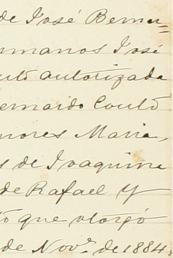 de José Berna=
ermanos José
auto autorizada
ernardo Coutó
nores Maria,
s de Joaquina
de Rafael Y
to que otorgó
de Novᵉ de 1884.